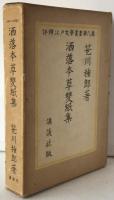 評釋江戸文學叢書第八卷
笹川種郎著
洒落本草雙紙集
講談社版
洒落本草雙紙集
笹川種郎著